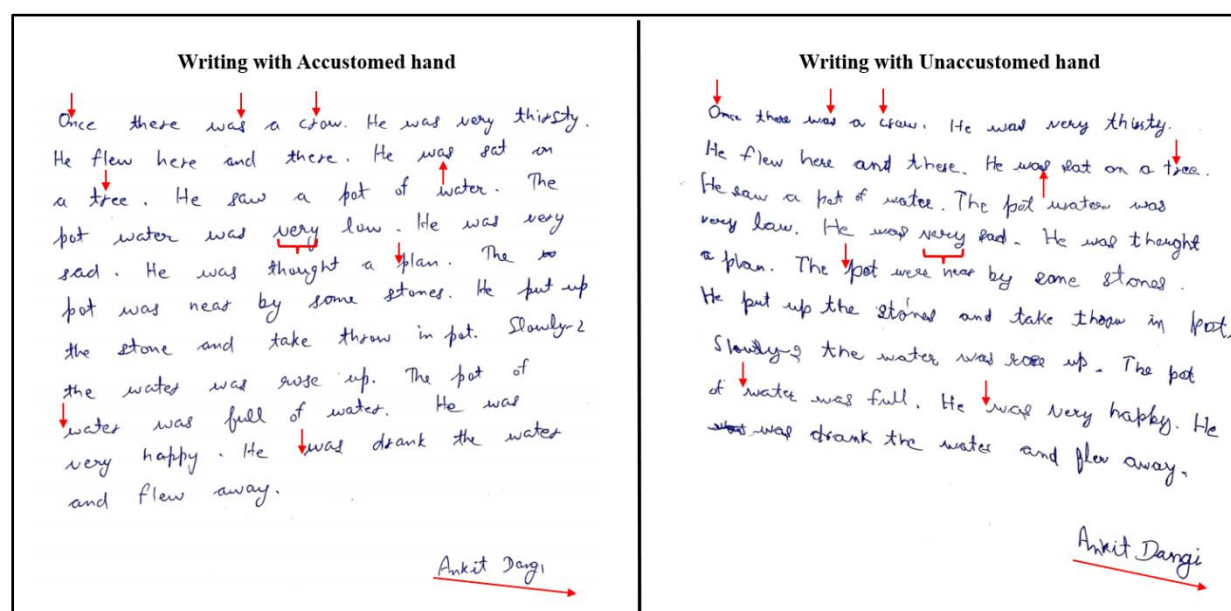 Writing with Accustomed hand
Once there was a crow. He was very thirsty.
He flew here and there. He was sat on
a tree. He saw a pot of water. The
pot water was very low. He was very
sad. He was thought a plan. The
pot was near by some stones. He put up
the stone and take throw in pot. Slowly-2
the water was rose up. The pot of
water was full of water. He was
very happy. He was drank the water
and flew away.
Ankit Dangi
Writing with Unaccustomed hand
Once there was a crow. He was very thirsty.
He flew here and there. He was sat on a tree.
He saw a pot of water. The pot water was
very low. He was very sad. He was thought
a plan. The pot were near by some stones.
He put up the stones and take throw in pot.
Slowly-2 the water was rose up. The pot
of water was full. He was very happy. He
was drank the water and flew away.
Ankit Dangi